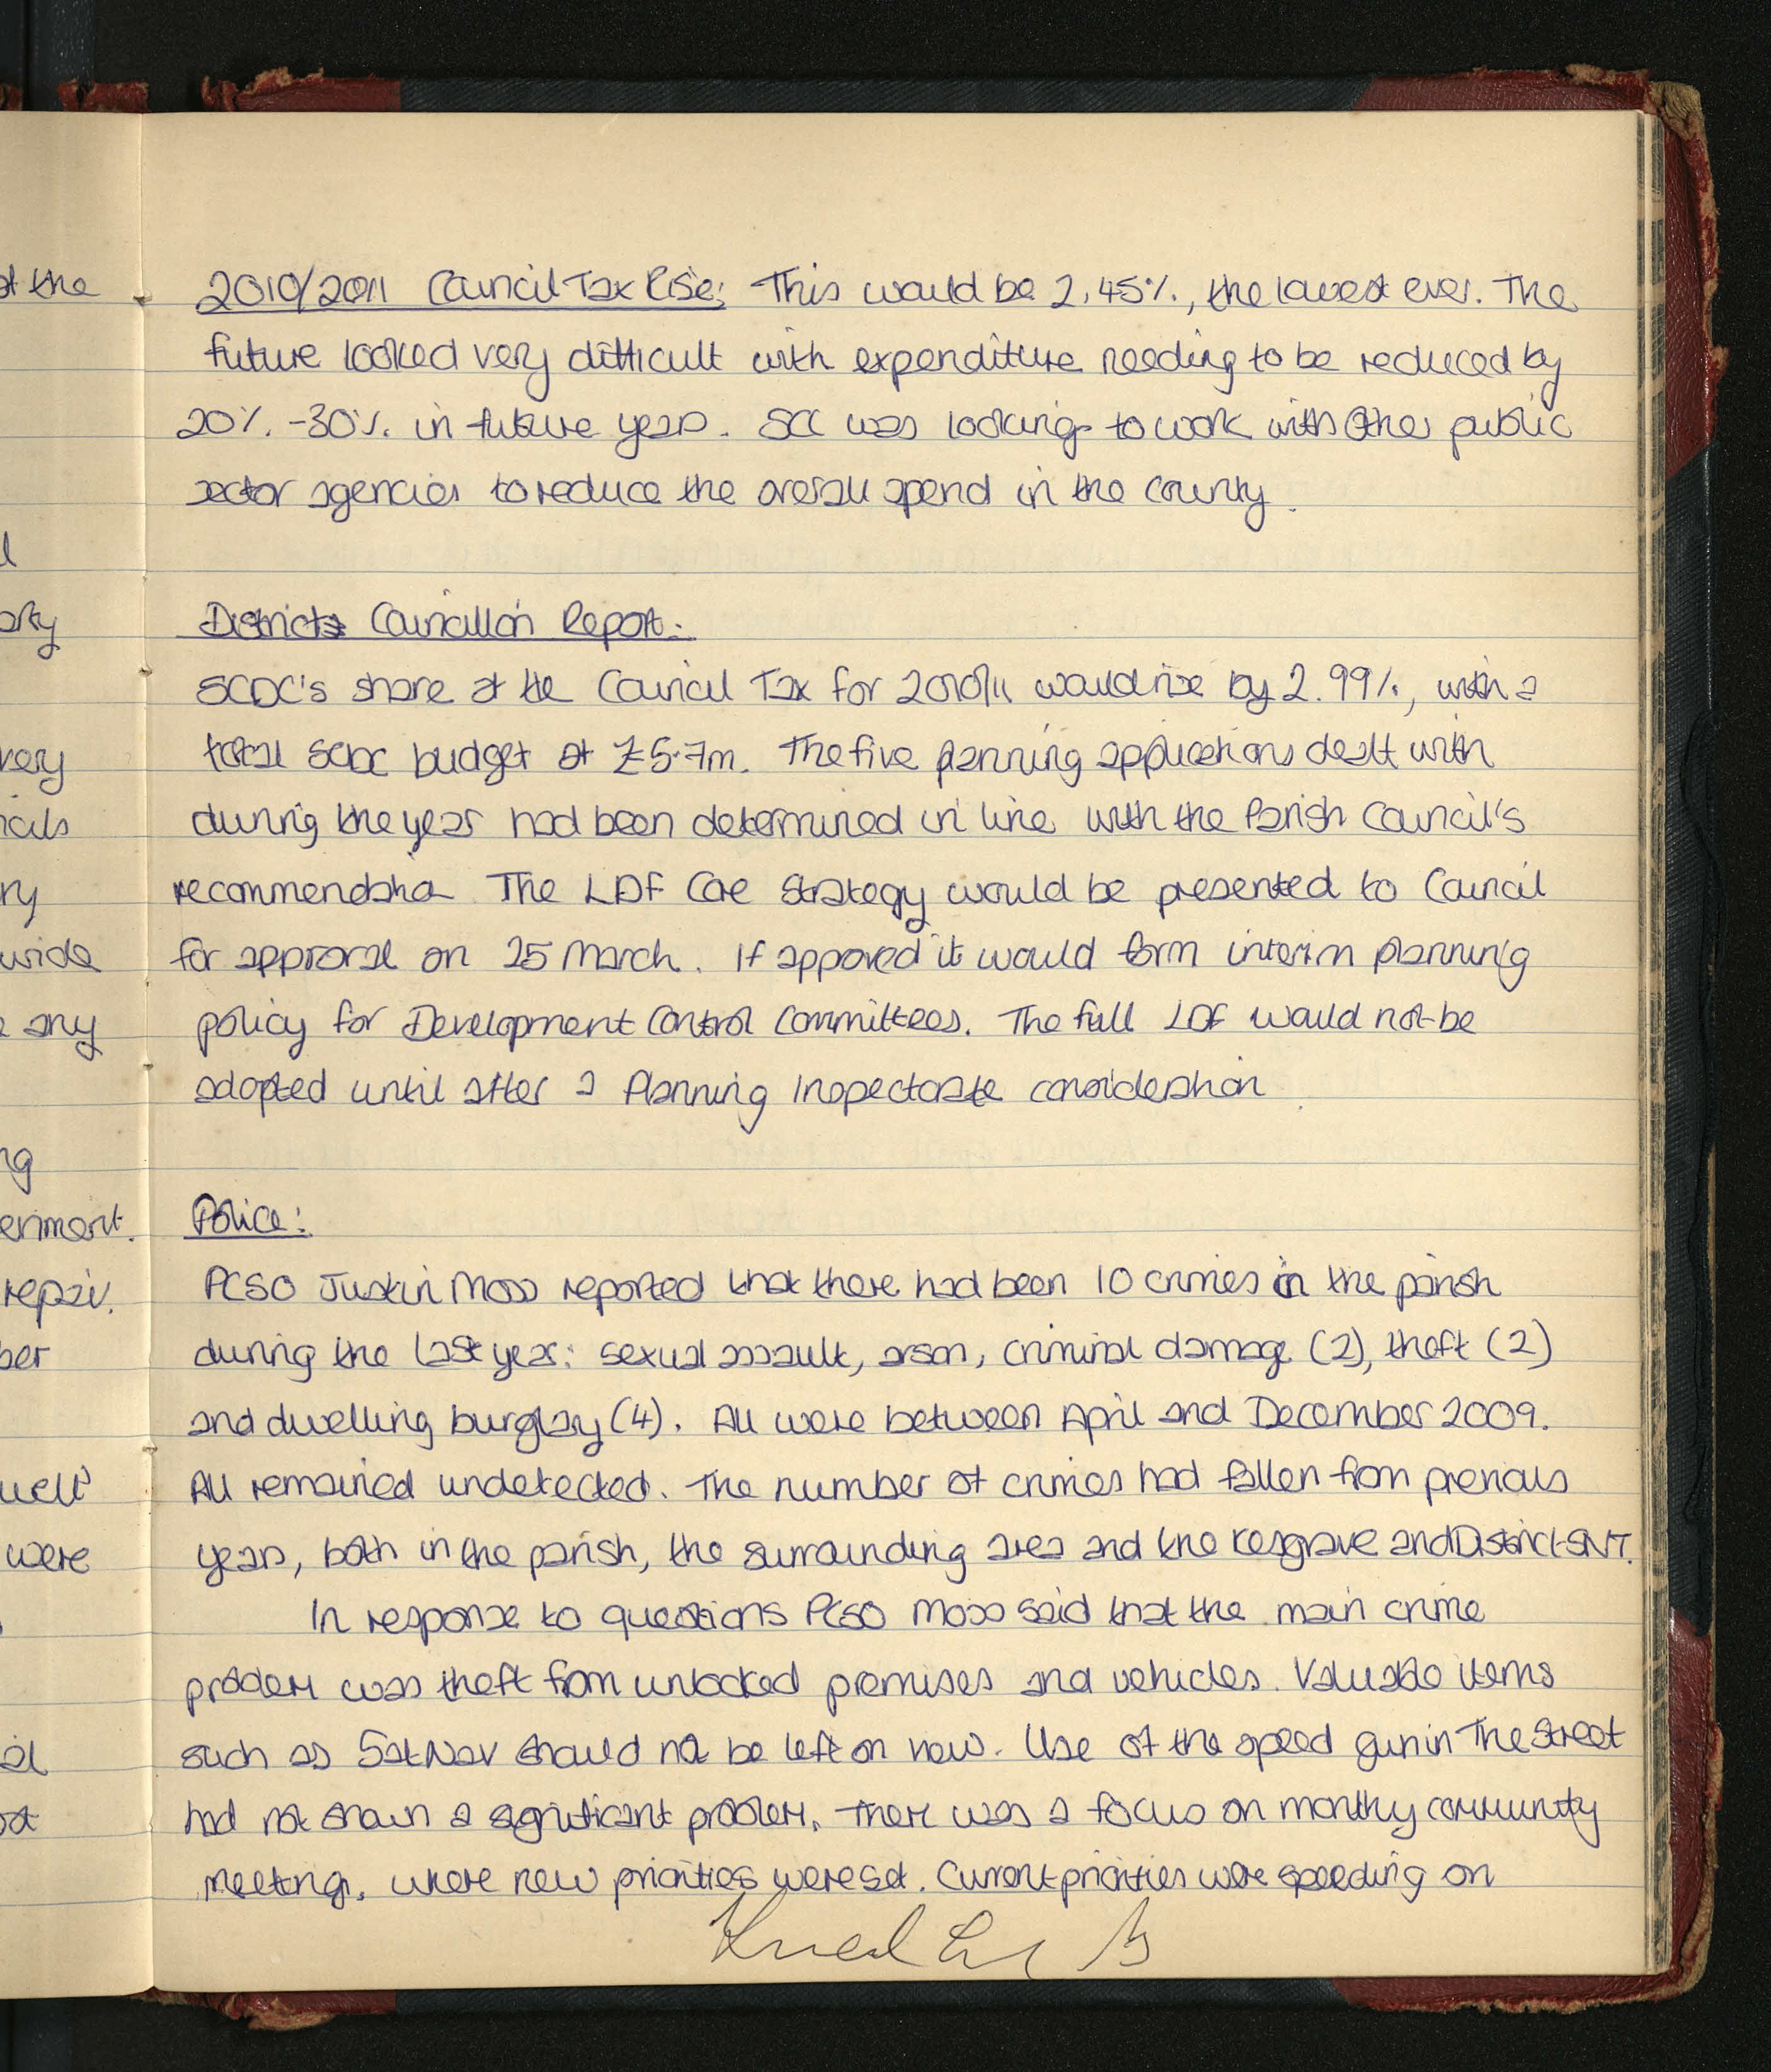 2010/2011 Council Tax Rise: This would be 2.45%, the lowest ever. The
future looked very difficult with expenditure needing to be reduced by
20% -30% in future years. SCC was looking to work with other public
sector agencies to reduce the overall spend in the county.
District Councillor's Report:
SCDC's share of the Council Tax for 2010/11 would rise by 2.99%, with a
total SCDC budget of £5.7m. The five planning applications dealt with
during the year had been determined in line with the Parish Council's
recommendation The LDF Core Strategy would be presented to Council
for approval on 25 March. If approved it would form interim planning
policy for Development Control Committees. The full LDF would not be
adopted until after a Planning Inspectorate consideration.
Police:
PCSO Justin Moss reported that there had been 10 crimes in the parish
during the last year: sexual assault, arson, criminal damage (2), theft (2)
and dwelling burglary (4). All were between April and December 2009.
All remained undetected. The number of crimes had fallen from previous
years, both in the parish, the surrounding area and the Kesgrave and District SNT.
In response to questions PCSO Moss said that the main crime
problem was theft from unlocked premises and vehicles. Valuable items
such as Sat Nav should not be left on view. Use of the speed gun in The Street
had not shown a significant problem. There was a focus on monthly community
meetings, where new priorities were set. Current priorities were speeding on